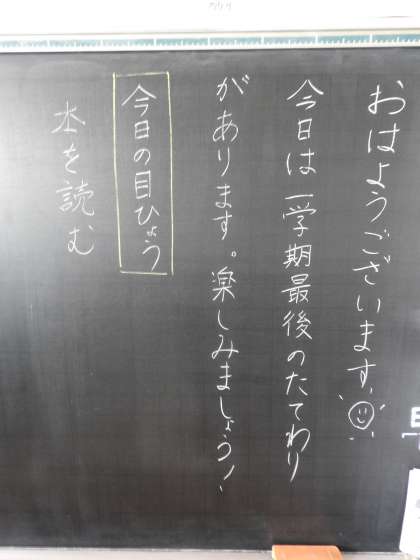 おはようございます。
今日は一学期最後のたてわり
があります。楽しみましょう!
今日の目ひょう
本を読む